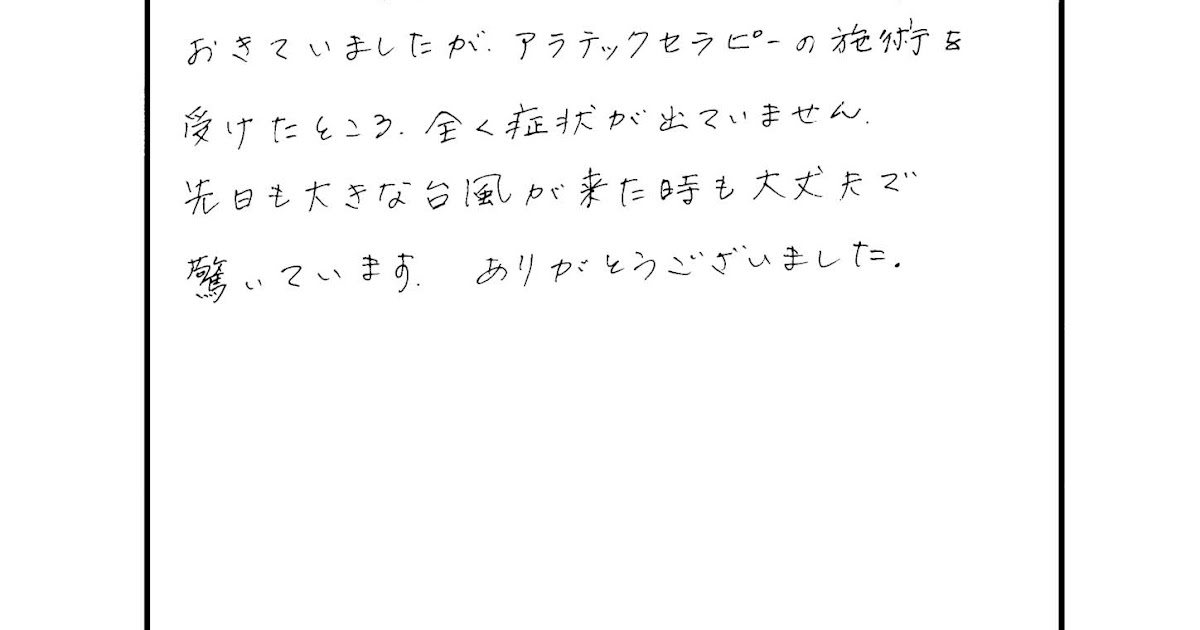 おきていましたが、アラテックセラピーの施術を
受けたところ、全く症状が出ていません。
先日も大きな台風が来た時も大丈夫で
驚いています。 ありがとうございました。